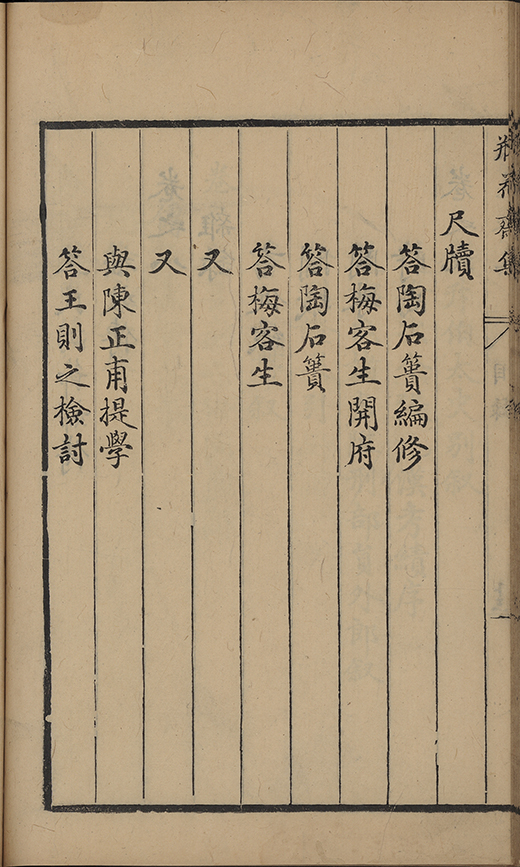 尺牘
答陶石簣編修
答梅客生開府
答陶石簣
答梅客生
又
又
與陳正甫提學
答王則之檢討